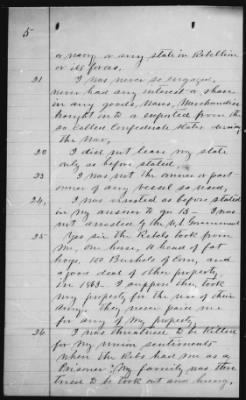 5
or navy or any state in Rebellion
or its forces.
21 I was never so engaged,
never had any interest or share
in any goods, wares, Merchandise
brought into or exported from the
so called Confederate States during
the War,
22 I did not leave my state
only as before stated.
23 I was not the owner or part
owner of any vessel so used,
24, I was arrested as before stated
in my answer to qu 13 — I was
not arrested by the U.S. Government
25 Yes sir the Rebels took from
me, one horse, 10 head of fat
hogs, 100 Bushels of Corn, and
a good deal of other property
in 1863. I suppose they took
my property for the use of their
army. They never paid me
for any of my property.
26 I was threatened to be killed
for my union sentiments
when the Rebs had me as a
Prisoner. My family was threa
tened to be took out and hung,